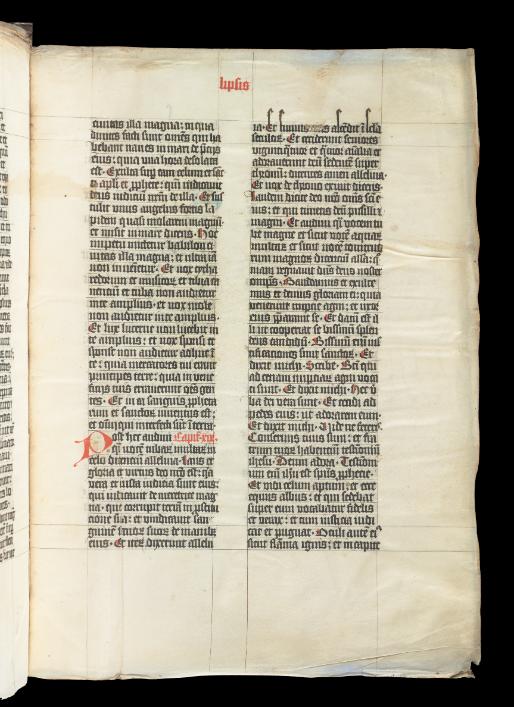 lipsis
ciuitas illa magna: in qua
diuites facti sunt omēs qui ha
bebant naues in mari de p̄cijs
eius: quia una hora desolata
est. Exulta sup eam celum et sācti
apl̄i et ꝓphete: qm̄ iudicauit
deus iudiciū vr̄m de illa. Et sus
tulit unus angelus fortis la
pidem quasi molarem magnū:
et misit in mare dicens. Hoc
impetu mittetur babilon ci
uitas illa magna: et ultra iā
non inuenietur. Et uox cytha
redorum et musicorum et tibia ca
nentiū et tuba non audietur
in te amplius. et uox mole
non audietur in te amplius.
Et lux lucerne non lucebit in
te amplius: et uox sponsi et
sponse non audietur adhuc ī
te: quia mercatores tui erant
principes terre: quia in vene
ficijs tuis errauerunt om̄s gen
tes. Et in ea sanguis ꝓphetarum
et sanctorum inuentus est:
et om̄iū qui interfecti sūt ī terra.
Post hec audiui Capit. xix.
qͣsi uocē tubarum multarum in
celo dicentiū alleluia. Laus et
gloria et uirtus deo nr̄o est: qa
uera et iusta iudicia sunt eius:
qui iudicauit de meretrice mag
na: que corrupit terrā in ꝓstitu
cione sua: et uindicauit san
guinē seruorum suorum de manibus
eius. Et iterum dixerunt allelu
ia. Et fumus ascendit ī secula
seculorum. Et ceciderunt seniores
uigintiquatuor et quatuor aīalia et
adorauerunt deū sedentē super
thronū: dicentes amen alleluia.
Et uox de throno exiuit dicens.
Laudem dicite deo nr̄o oms̄ scī e
ius: et qui timetis deū pusilli et
magni. Et audiui qͣsi uocem tu
be magne et sicut uocē aquarum
multarum et sicut uocē tonitruorum
magnorum dicentiū alla: qm̄
regnauit dn̄s deus noster
omps̄. Gaudeamus et exulte
mus et demus gloriam ei: quia
venerunt nupcie agni: et uxor
eius p̄parauit se. Et datū est il
li ut cooperiat se bissinū splen
dens candidū. Bissinū enī ius
tificationes sunt sanctorum. Et
dixit michi. Scribe. Bti qui
ad cenam nupciarum agni uoca
ti sunt. Et dixit michi. Hec v̄
ba dei uera sunt. Et cecidi ad
pedes eius: ut adorarem eum.
Et dixit michi. Vide ne feceris.
Conseruus tuus sum: et fra
trum tuorum habentiū testimoniū
ihesu. Deum adora. Testimoni
um enī ihū est sp̄us ꝓphetie.
Et vidi celum aptum: et ecce
equus albus: et qui sedebat
super eum uocabatur fidelis
et verax: et cum iusticia iudi
cat et pugnat. Oculi autē eiꝰ
sicut flāma ignis: et in capite